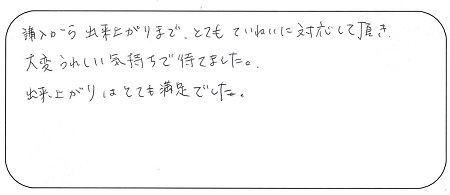 購入から出来上がりまで、とてもていねいに対応して頂き
大変うれしい気持ちで待てました。
出来上がりはとても満足でした。